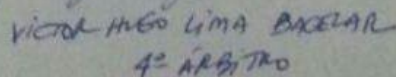 VICTOR HUGO LIMA BACELAR
4º ÁRBITRO